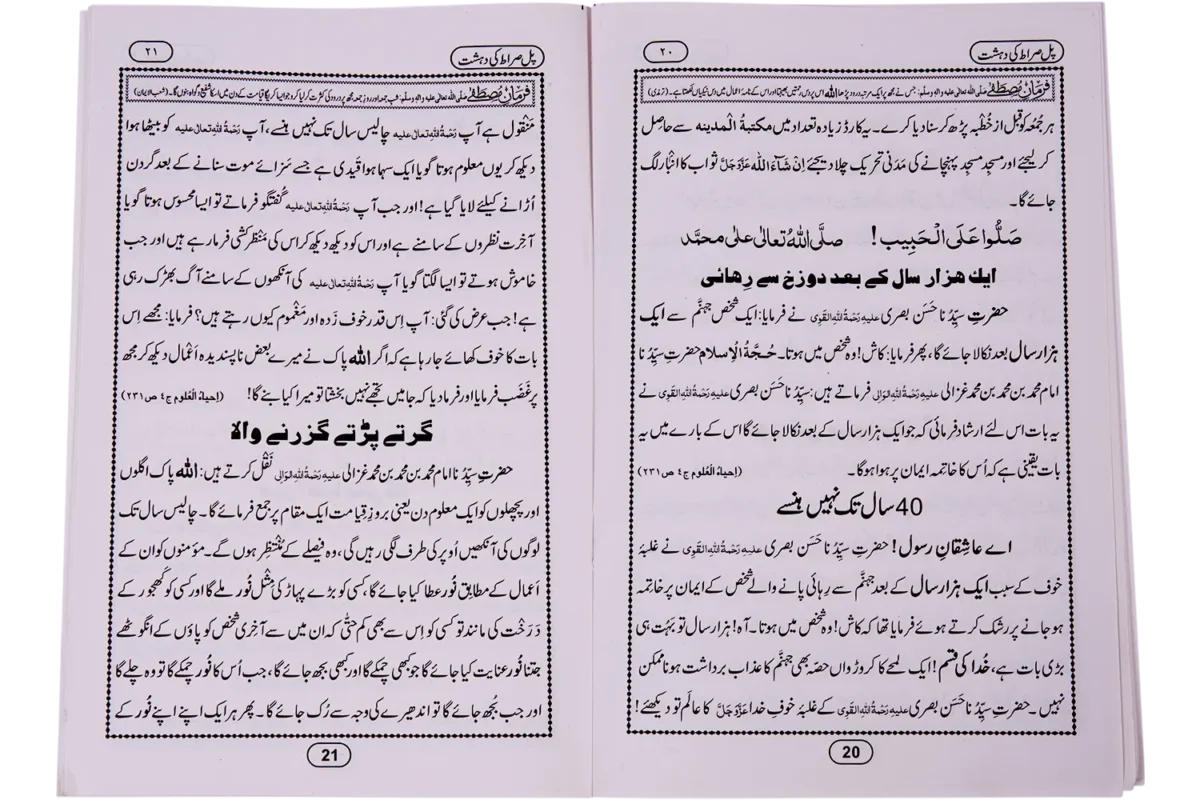 پل صراط کی دہشت
۲۰
فرمانِ مصطفٰے صلَّی اللہ تعالٰی علیہ واٰلہٖ وسلَّم: جس نے مجھ پر ایک مرتبہ درود پڑھا اللہ اس پر دس رحمتیں بھیجتا اور اس کے نامۂ اعمال میں دس نیکیاں لکھتا ہے۔ (ترمذی)
ہر جُمُعہ کو قبل از خُطبہ پڑھ کر سنا دیا کرے۔ یہ کارڈ زیادہ تعداد میں مکتبۃُ الْمدینہ سے حاصِل
کر لیجئے اور مسجد مسجد پہنچانے کی مَدَنی تحریک چلا دیجئے اِنْ شَآءَ اللہ عَزَّوَجَلَّ ثواب کا انبار لگ
جائے گا۔
صَلُّوا عَلَی الْحَبِیب! صلَّی اللہُ تعالٰی علٰی محمَّد
ایک ہزار سال کے بعد دوزخ سے رِہائی
حضرتِ سیِّدُنا حَسَن بصری علیہِ رَحْمَۃُ اللہِ القوی نے فرمایا: ایک شخص جہنَّم سے ایک
ہزار سال بعد نکالا جائے گا، پھر فرمایا: کاش! وہ شخص میں ہوتا۔ حُجَّۃُ الْاِسلام حضرتِ سیِّدُنا
امام محمد بن محمد بن محمد غزالی علیہِ رَحْمَۃُ اللہِ الوالی فرماتے ہیں: سیِّدُنا حَسَن بصری علیہِ رَحْمَۃُ اللہِ القوی نے
یہ بات اس لئے ارشاد فرمائی کہ جو ایک ہزار سال کے بعد نکالا جائے گا اس کے بارے میں یہ
بات یقینی ہے کہ اُس کا خاتِمہ ایمان پر ہوا ہوگا۔ (احیاءُ الْعُلوم ج٤ ص ٢٣١)
40 سال تک نہیں ہنسے
اے عاشِقانِ رسول! حضرتِ سیِّدُنا حَسَن بصری علیہِ رَحْمَۃُ اللہِ القوی نے غلبۂ
خوف کے سبب ایک ہزار سال کے بعد جہنَّم سے رِہائی پانے والے شخص کے ایمان پر خاتمہ
ہو جانے پر رشک کرتے ہوئے فرمایا تھا کہ کاش! وہ شخص میں ہوتا۔ آہ! ہزار سال تو بَہُت ہی
بڑی بات ہے، خُدا کی قسم! ایک لمحے کا کروڑواں حصّہ بھی جہنَّم کا عذاب برداشت ہونا ممکن
نہیں۔ حضرتِ سیِّدُنا حَسَن بصری علیہِ رَحْمَۃُ اللہِ القوی کے غلبۂ خوفِ خدا عَزَّوَجَلَّ کا عالَم تو دیکھئے!
20
پل صراط کی دہشت
۲۱
فرمانِ مصطفٰے صلَّی اللہ تعالٰی علیہ واٰلہٖ وسلَّم: شبِ جمعہ اور روزِ جمعہ مجھ پر درود کی کثرت کر لیا کرو جو ایسا کرے گا قیامت کے دن میں اسکا شفیع و گواہ بنوں گا۔ (شعب الایمان)
مَنقول ہے آپ رَحْمَۃُ اللہِ تعالٰی علیہ چالیس سال تک نہیں ہنسے، آپ رَحْمَۃُ اللہِ تعالٰی علیہ کو بیٹھا ہوا
دیکھ کر یوں معلوم ہوتا گویا ایک سہما ہوا قیدی ہے جسے سَزائے موت سنانے کے بعد گردن
اُڑانے کیلئے لایا گیا ہے! اور جب آپ رَحْمَۃُ اللہِ تعالٰی علیہ گُفتگو فرماتے تو ایسا محسوس ہوتا گویا
آخرت نظروں کے سامنے ہے اور اس کو دیکھ دیکھ کر اس کی مَنظر کشی فرما رہے ہیں اور جب
خاموش ہوتے تو ایسا لگتا گویا آپ رَحْمَۃُ اللہِ تعالٰی علیہ کی آنکھوں کے سامنے آگ بھڑک رہی
ہے! جب عرض کی گئی: آپ اِس قدر خوف زَدہ اور مَغْموم کیوں رہتے ہیں؟ فرمایا: مجھے اِس
بات کا خوف کھائے جا رہا ہے کہ اگر اللہ پاک نے میرے بعض ناپسندیدہ اَعْمال دیکھ کر مجھ
پر غَضَب فرمایا اور فرما دیا کہ جا میں تجھے نہیں بخشتا تو میرا کیا بنے گا! (احیاءُ الْعُلوم ج٤ ص ٢٣١)
گرتے پڑتے گزرنے والا
حضرتِ سیِّدُنا امام محمد بن محمد بن محمد غزالی علیہِ رَحْمَۃُ اللہِ الوالی نَقْل کرتے ہیں: اللہ پاک اگلوں
اور پچھلوں کو ایک معلوم دن یعنی بروزِ قِیامت ایک مقام پر جمع فرمائے گا۔ چالیس سال تک
لوگوں کی آنکھیں اُوپر کی طرف لگی رہیں گی، وہ فیصلے کے مُنْتظِر ہوں گے۔ مؤمنوں کو ان کے
اَعمال کے مطابِق نُور عطا کیا جائے گا، کسی کو بڑے پہاڑ کی مِثْل نُور ملے گا اور کسی کو کَھجور کے
دَرَخْت کی مانند تو کسی کو اِس سے بھی کم حتّٰی کہ ان میں سے آخری شخص کو پاؤں کے انگوٹھے
جتنا نُور عنایت کیا جائے گا جو کبھی چمکے گا اور کبھی بجھ جائے گا، جب اُس کا نُور چمکے گا تو وہ چلے گا
اور جب بُجھ جائے گا تو اندھیرے کی وجہ سے رُک جائے گا۔ پھر ہر ایک اپنے اپنے نُور کے
21